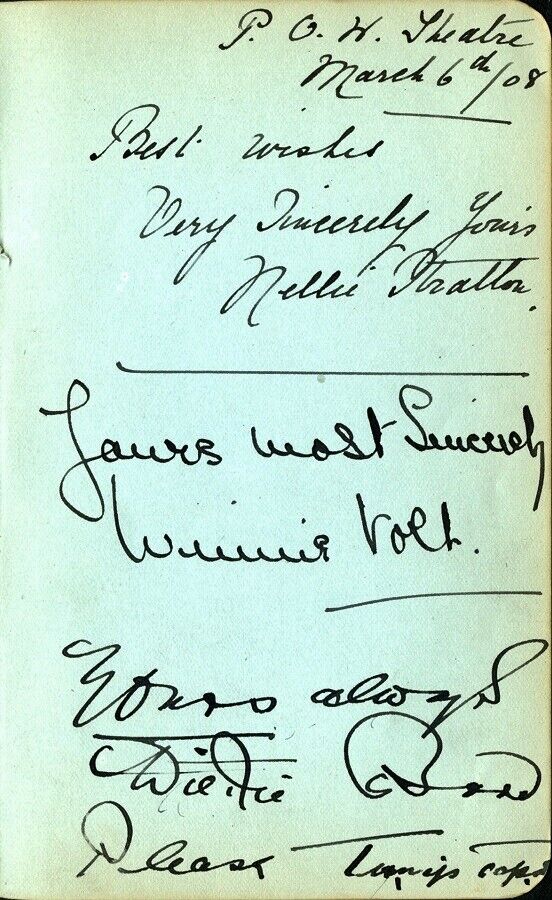 P. O. W. Theatre
March 6th/08
Best wishes
Very Sincerely Yours
Nellie Stratton.
Yours most Sincerely
Winnie Volt.
Yours always
Wilkie Bard
Please